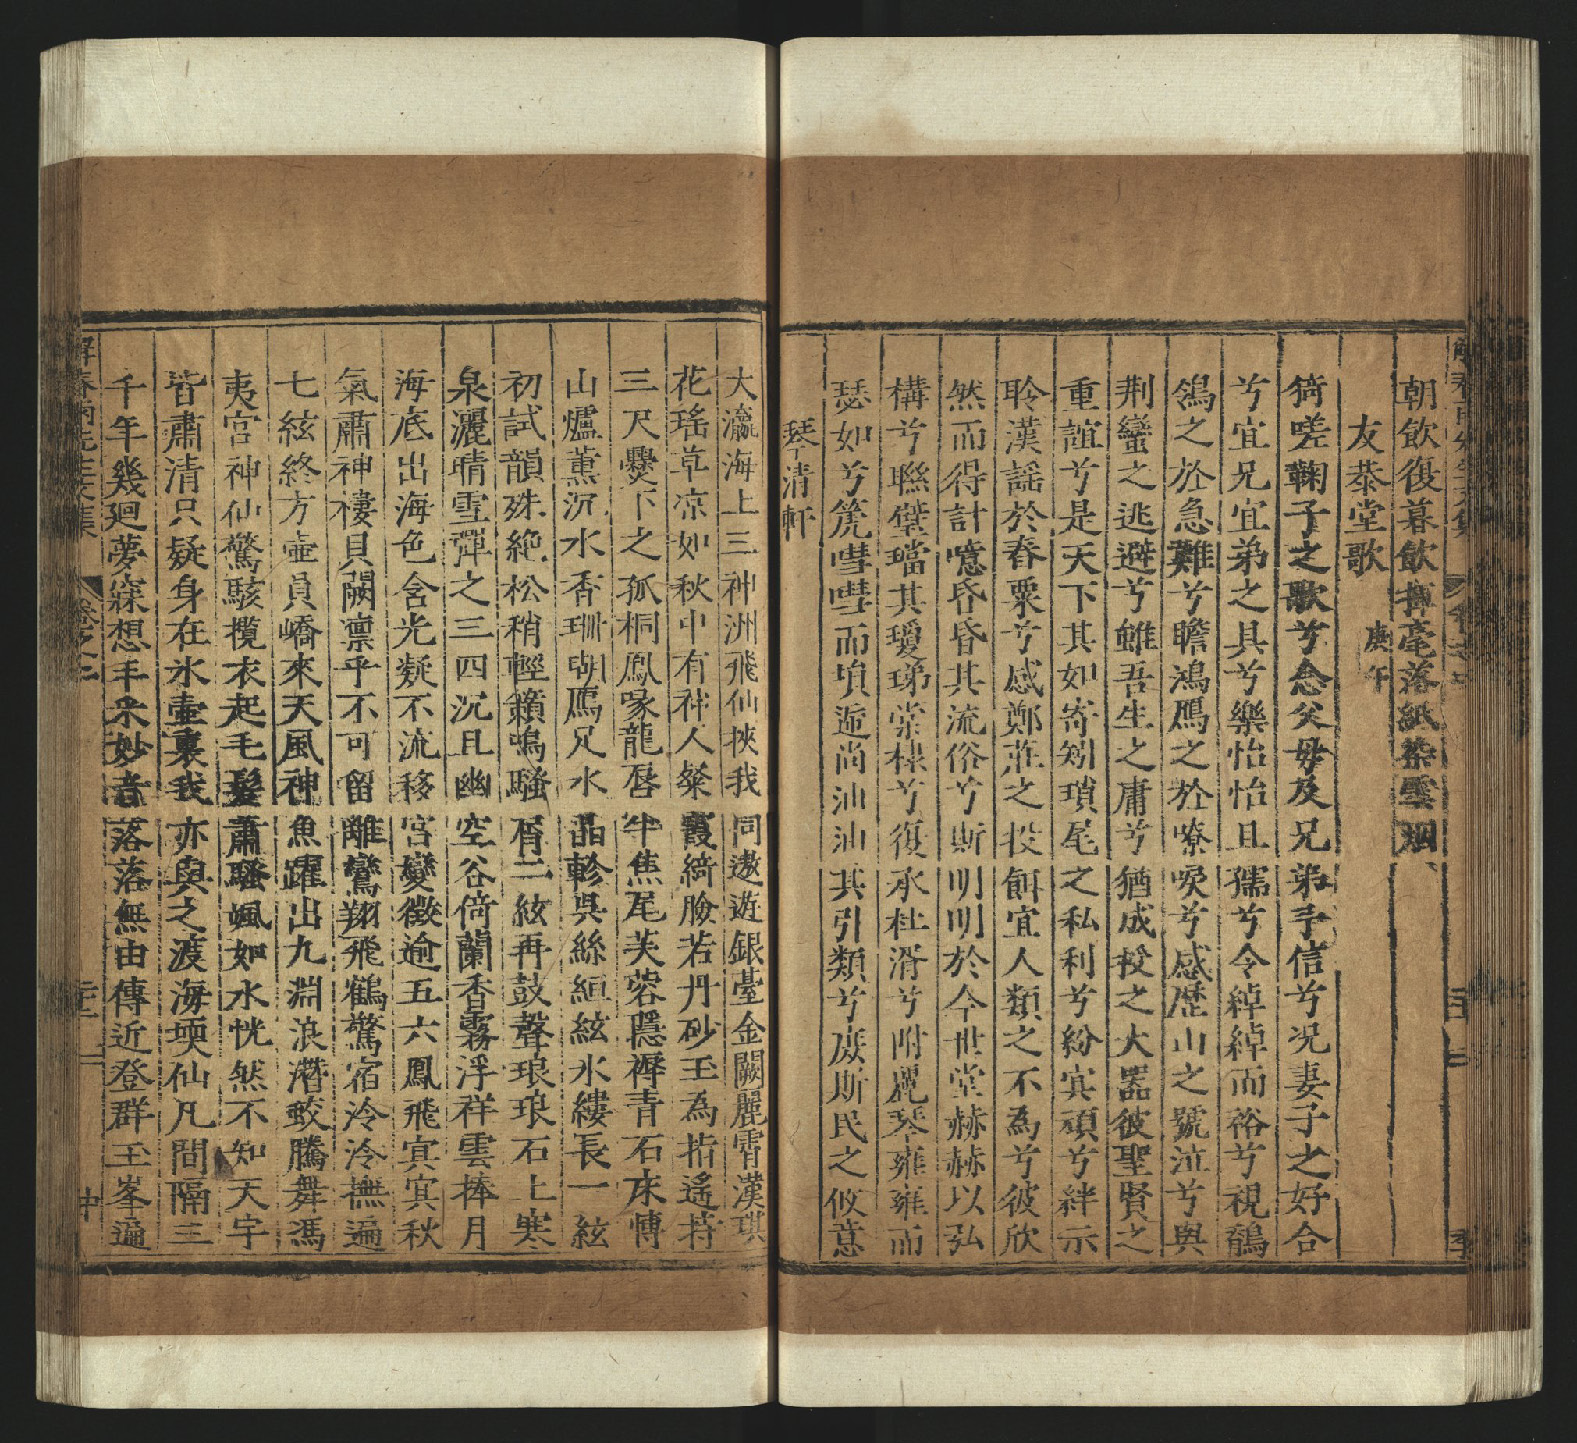 朝飲復暮飲揮毫落紙染雲烟
友恭堂歌 庚午
猗嗟鞠子之歌兮念父母及兄弟手信兮况妻子之好合
兮宜兄宜弟之具兮樂怡怡且孺兮令綽綽而裕兮視鶺
鴒之於急難兮瞻鴻鴈之於嘹唳兮感歷山之號泣兮與
荆蠻之逃避兮雖吾生之庸兮猶成投之大噐彼聖賢之
重誼兮是天下其如寄矧瑣尾之私利兮紛冥頑兮絆示
聆漢謡於舂粟兮感鄭莊之投餌宜人類之不為兮彼欣
然而得計噫昏昏其流俗兮斯明明於今世堂赫赫以弘
構兮聯堂璫其璦珶棠棣兮復承杜湑兮附麗琴雍雍而
瑟如兮箎嘒嘒而塤逌尚汕汕其引類兮庶斯民之攸意
琴清軒
大瀛海上三神洲飛仙挾我同遨遊銀臺金闕麗霄漢琪
花瑤草凉如秋中有神人粲霞綺臉若丹砂玉為指遙持
三尺爨下之孤桐鳳喙龍唇半焦尾芙蓉隱褥青石床愽
山爐薰沉水香珊瑚鴈足水晶軫吳絲絙絃氷縷長一絃
初試韻殊絶松稍輕籟鳴騷屑二絃再鼓聲琅琅石上寒
泉灑晴雪彈之三四沉且幽空谷倚蘭香霧浮祥雲捧月
海底出海色含光凝不流移宮變徵逾五六鳳飛冥冥秋
氣肅神棲貝闕凛乎不可留離鸞翔飛鶴驚宿泠泠撫遍
七絃終方壷員嶠來天風神魚躍出九淵浪潛蛟騰舞馮
夷宮神仙驚駭攬衣起毛髮蕭騷颯如水恍然不知天宇
皆肅清只疑身在氷壷裏我亦與之渡海堧仙凡間隔三
千年幾廻夢寐想丰采妙音落落無由傳近登群玉峯遍